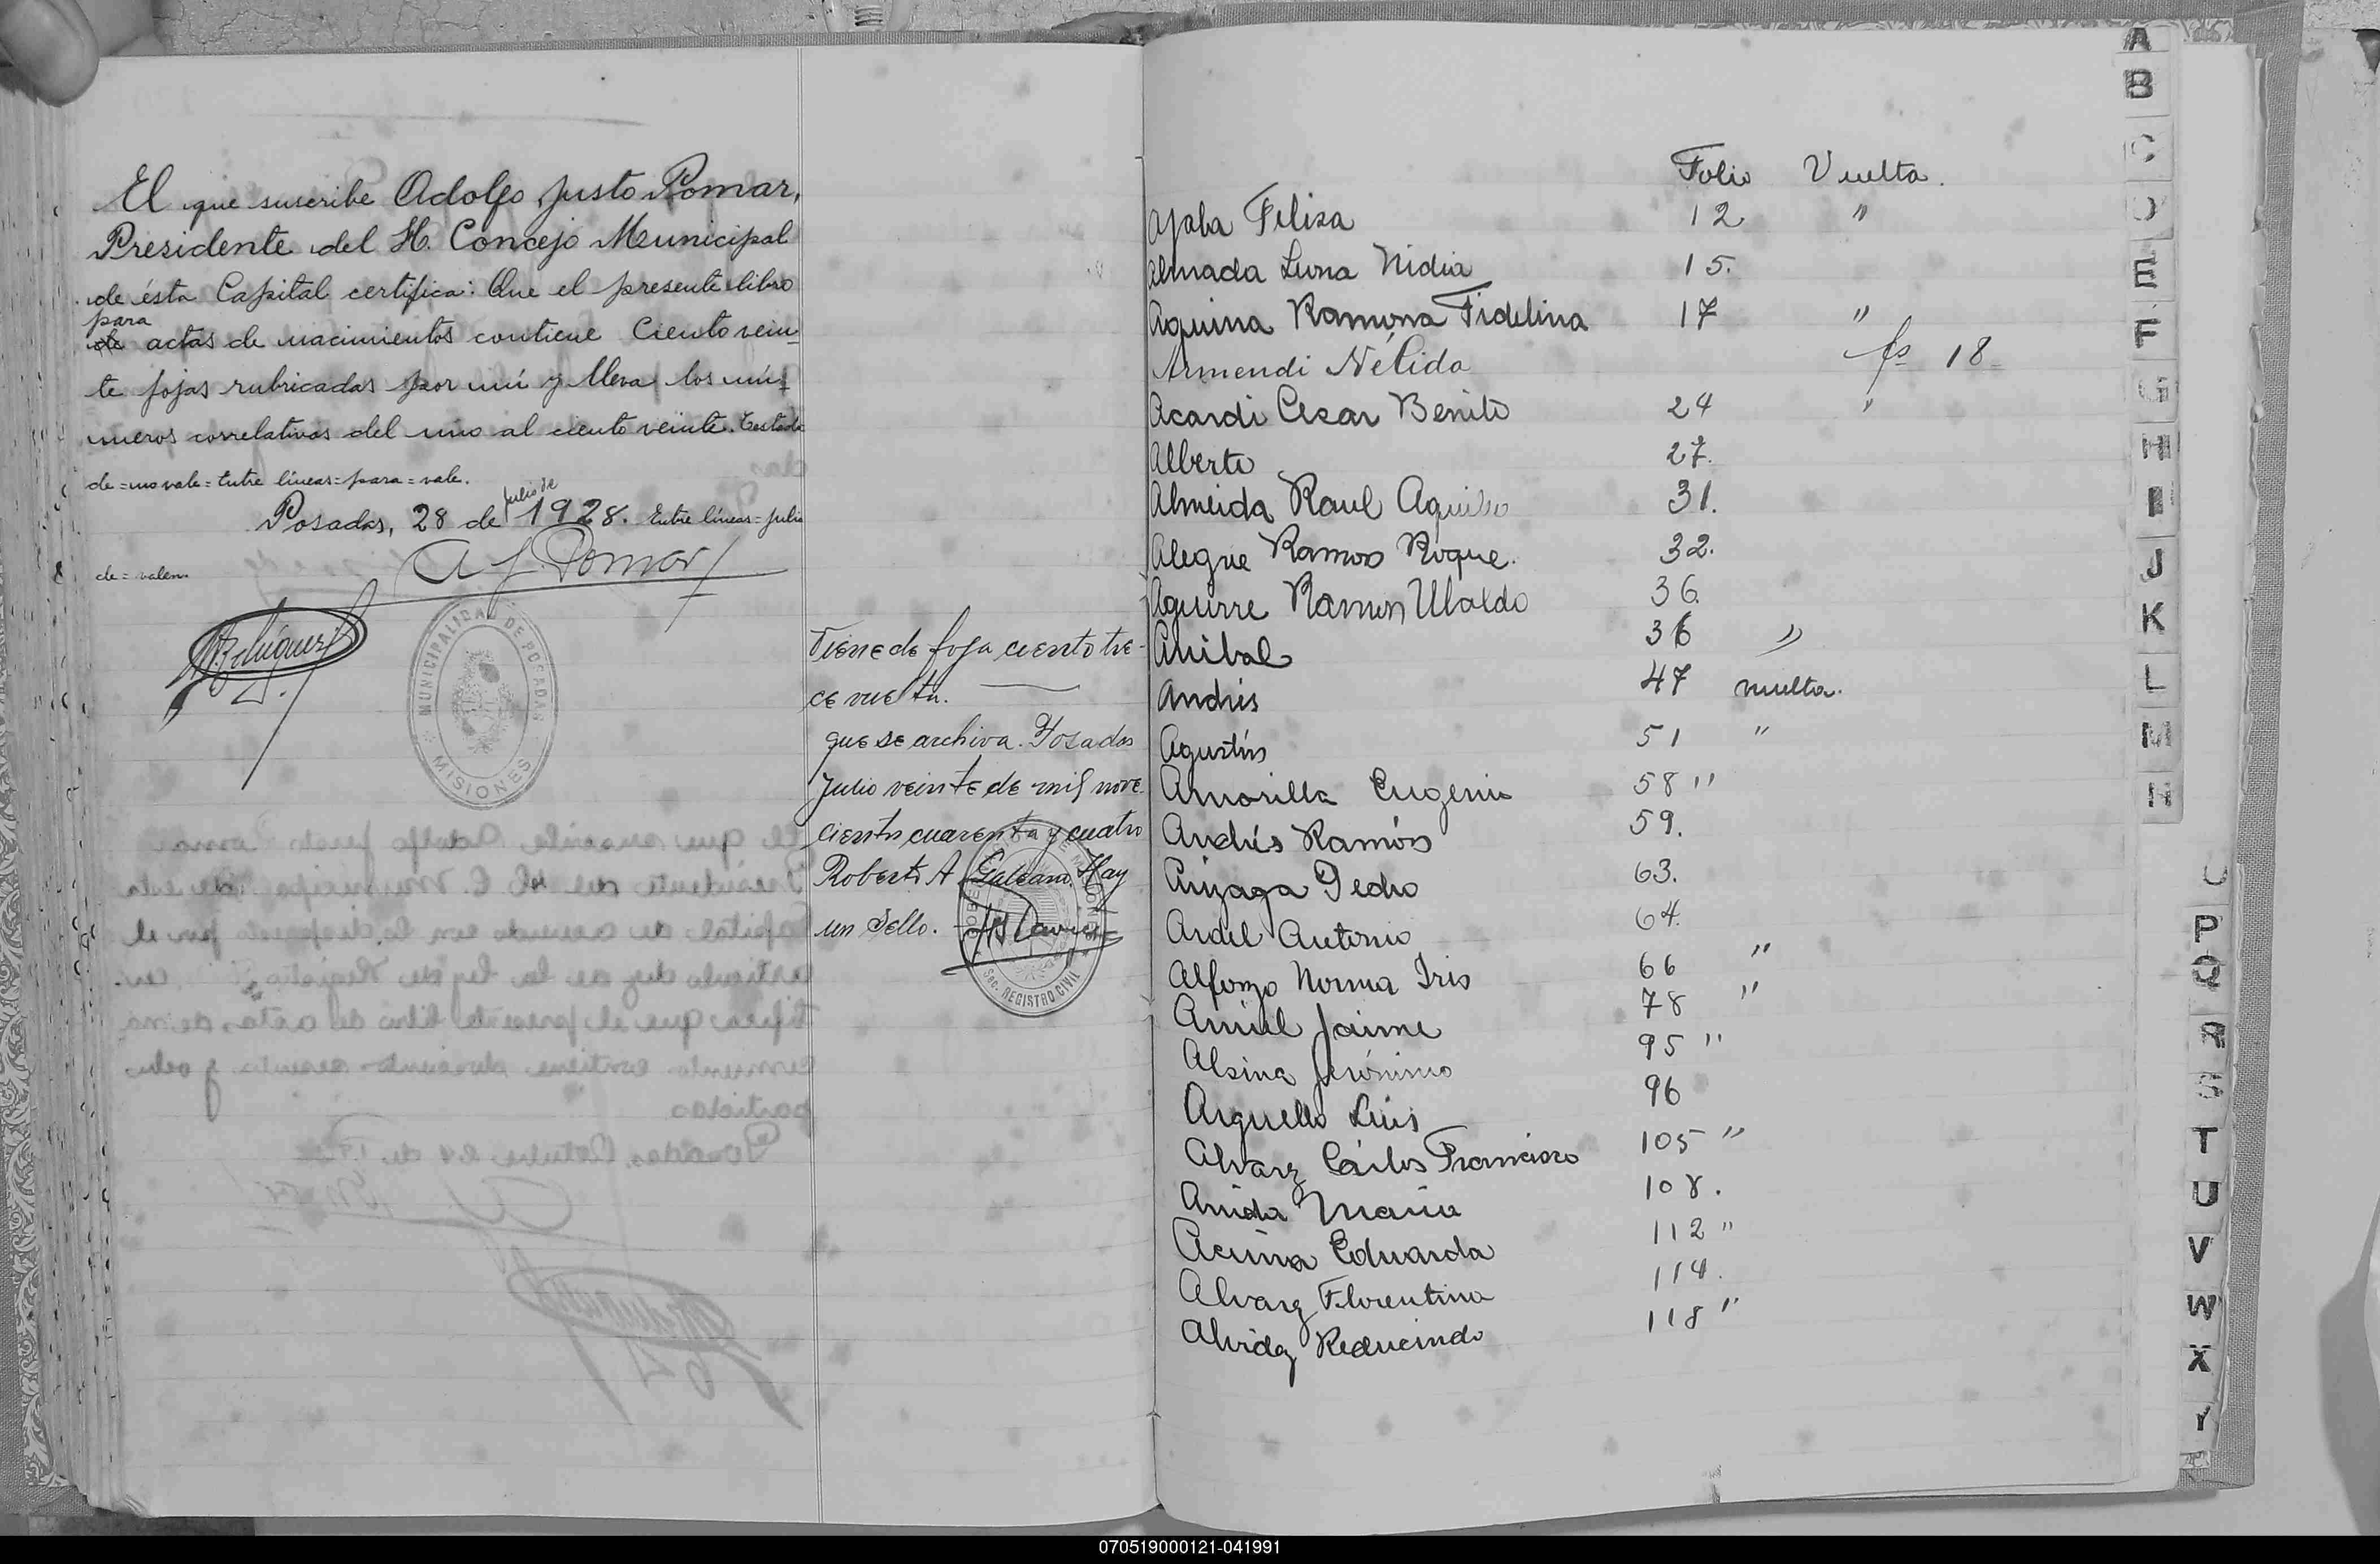 El que suscribe Adolfo Justo Pomar,
Presidente del H. Concejo Municipal
de ésta Capital certifica: Que el presente libro
para
de actas de nacimientos contiene Ciento vein=
te fojas rubricadas por mí y lleva los nú=
meros correlativos del uno al ciento veinte. Testado
de = no vale = Entre líneas = para = vale.
julio de
Posadas, 28 de 1928. Entre líneas = julio
de = valen.
A J. Pomar
MUNICIPALIDAD DE POSADAS
MISIONES
Viene de foja ciento tre-
ce vuelta.
que se archiva. Posadas
Julio veinte de mil nove
cientos cuarenta y cuatro
Roberto A. Galeano. Hay
un Sello.
Sec. REGISTRO CIVIL
Folio Vuelta.
Ayala Felisa 12 "
Almada Luna Nidia 15.
Aquina Ramona Fidelina 17 "
Armendi Nélida fs 18
Acardi Cesar Benito 24 "
Alberto 27.
Almeida Raul Aquiles 31.
Alegre Ramos Roque. 32.
Aguirre Ramon Ubaldo 36.
Anibal 36 "
Andrés 47 vuelta.
Agustín 51 "
Amarilla Eugenia 58 "
Andrés Ramón 59.
Arizaga Pedro 63.
Ardel Antonio 64.
Alfonzo Norma Iris 66 "
Jaime 78 "
Alsina Jerónimo 95 "
Arguello Luis 96
Alvarez Carlos Francisco 105 "
María 108.
Acuña Eduarda 112 "
Alvarez Florentina 114.
Alvidez Reducindo 118 "
A
B
C
D
E
F
G
H
I
J
K
L
M
N
P
Q
R
S
T
U
V
W
X
Y
070519000121-041991